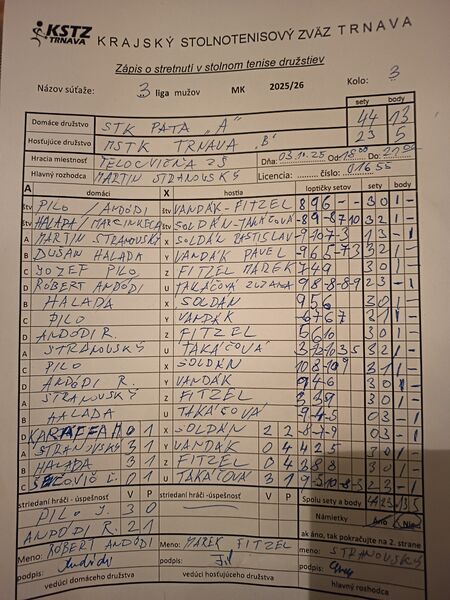 KSTZ TRNAVA KRAJSKÝ STOLNOTENISOVÝ ZVÄZ TRNAVA
Zápis o stretnutí v stolnom tenise družstiev
Názov súťaže: 3 liga mužov MK 2025/26 Kolo: 3
sety body
Domáce družstvo STK PATA "A" 44 13
Hosťujúce družstvo MSTK TRNAVA "B" 23 5
Hracia miestnosť TELOCVIČŇA ZŠ Dňa: 03.10.25 Od: 18:00 Do:
Hlavný rozhodca MARTIN STRANOVSKÝ Licencia: číslo: 01655
A domáci X hostia loptičky setov sety body
štv PILO / ANDÓDI štv VANDÁK-FITZEL 8 9 6 - - 3 0 1 -
štv HALADA / štv SOLDÁN-TAKÁČOVÁ 3 2 1 -
A MARTIN STRANOVSKÝ X SOLDÁN RASTISLAV 1 3 - 1
B DUŠAN HALADA Y VANDÁK PAVEL 3 2 1 -
C JOZEF PILO Z FITZEL MAREK 7 4 9 3 0 1 -
D RÓBERT ANDÓDI U TAKÁČOVÁ ZUZANA 2 3 - 1
B HALADA X SOLDÁN 9 5 6 3 0 1 -
C PILO Y VANDÁK -6 7 6 7 3 1 1 -
D ANDÓDI R. Z FITZEL 3 0 1 -
A STRANOVSKÝ U TAKÁČOVÁ 3 2 1 -
C PILO X SOLDÁN 3 1 1 -
D ANDÓDI R. Y VANDÁK 9 4 6 3 0 1 -
A STRANOVSKÝ Z FITZEL 3 0 1 -
B HALADA U TAKÁČOVÁ -9-4-5 0 3 - 1
D 0 1 X SOLDÁN 2 2 -8-7-9 0 3 - 1
A STRANOVSKÝ 3 1 Y VANDÁK 0 4 3 0 1 -
B HALADA 3 1 Z FITZEL 0 4 3 0 1 -
C 0 1 U TAKÁČOVÁ 3 1
striedaní hráči - úspešnosť V P striedaní hráči -úspešnosť V P Spolu sety a body 44 23 13 5
PILO J. 3 0 Námietky Áno Nie
ANDÓDI R. 2 1 ak áno, tak pokračujte na 2. strane
Meno: RÓBERT ANDÓDI Meno: MAREK FITZEL meno: STRANOVSKÝ
podpis: podpis: podpis:
vedúci domáceho družstva vedúci hosťujúceho družstva hlavný rozhodca